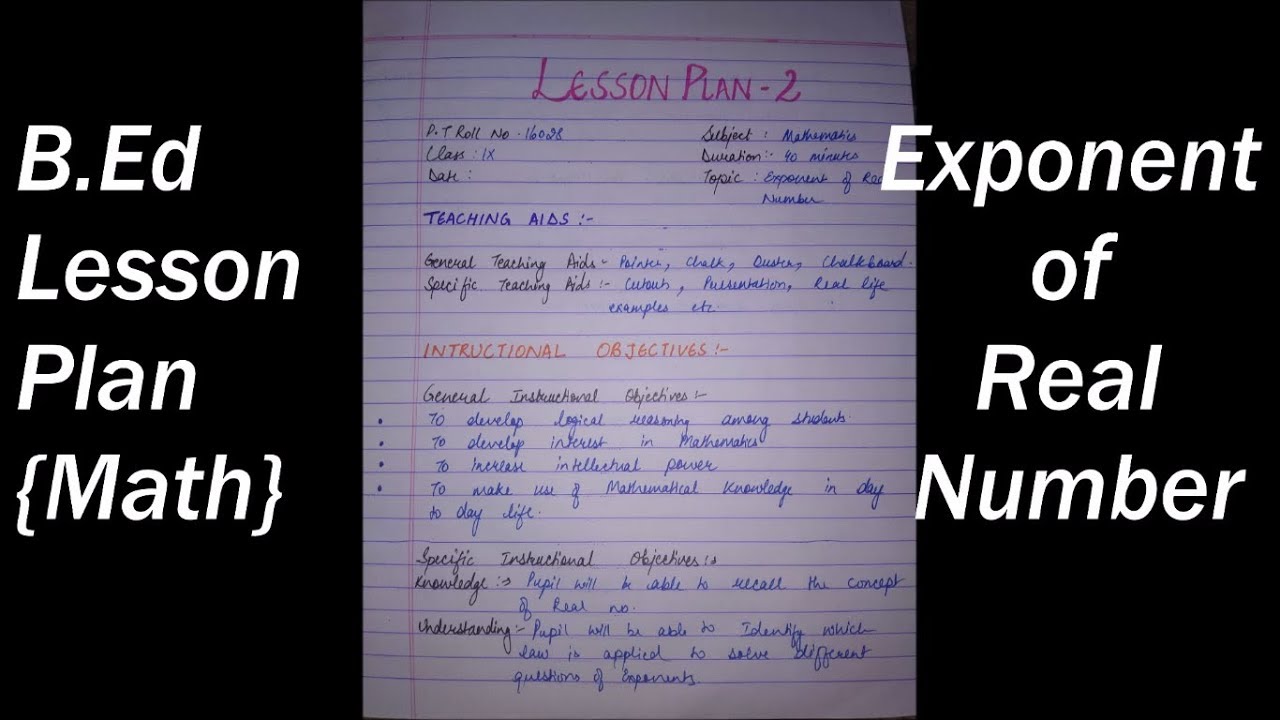 B.Ed
Lesson
Plan
{Math}
LESSON PLAN - 2
P.T Roll No. 16028
Class : IX
Date :
Subject : Mathematics
Duration:- 40 minutes
Topic : Exponent of Rea
Number
TEACHING AIDS :-
General Teaching Aids - Pointer, Chalk, Duster, Chalkboard.
Specific Teaching Aids :- Cutouts, Presentation, Real life
examples etc.
INTRUCTIONAL OBJECTIVES :-
General Instructional Objectives :-
• To develop logical reasoning among students.
• To develop interest in Mathematics
• To increase intellectual power
• To make use of Mathematical Knowledge in day
to day life.
Specific Instructional Objectives :-
Knowledge :-> Pupil will be able to recall the concept
of Real no.
Understanding :- Pupil will be able to Identify which
law is applied to solve different
questions of Exponents.
Exponent
of
Real
Number